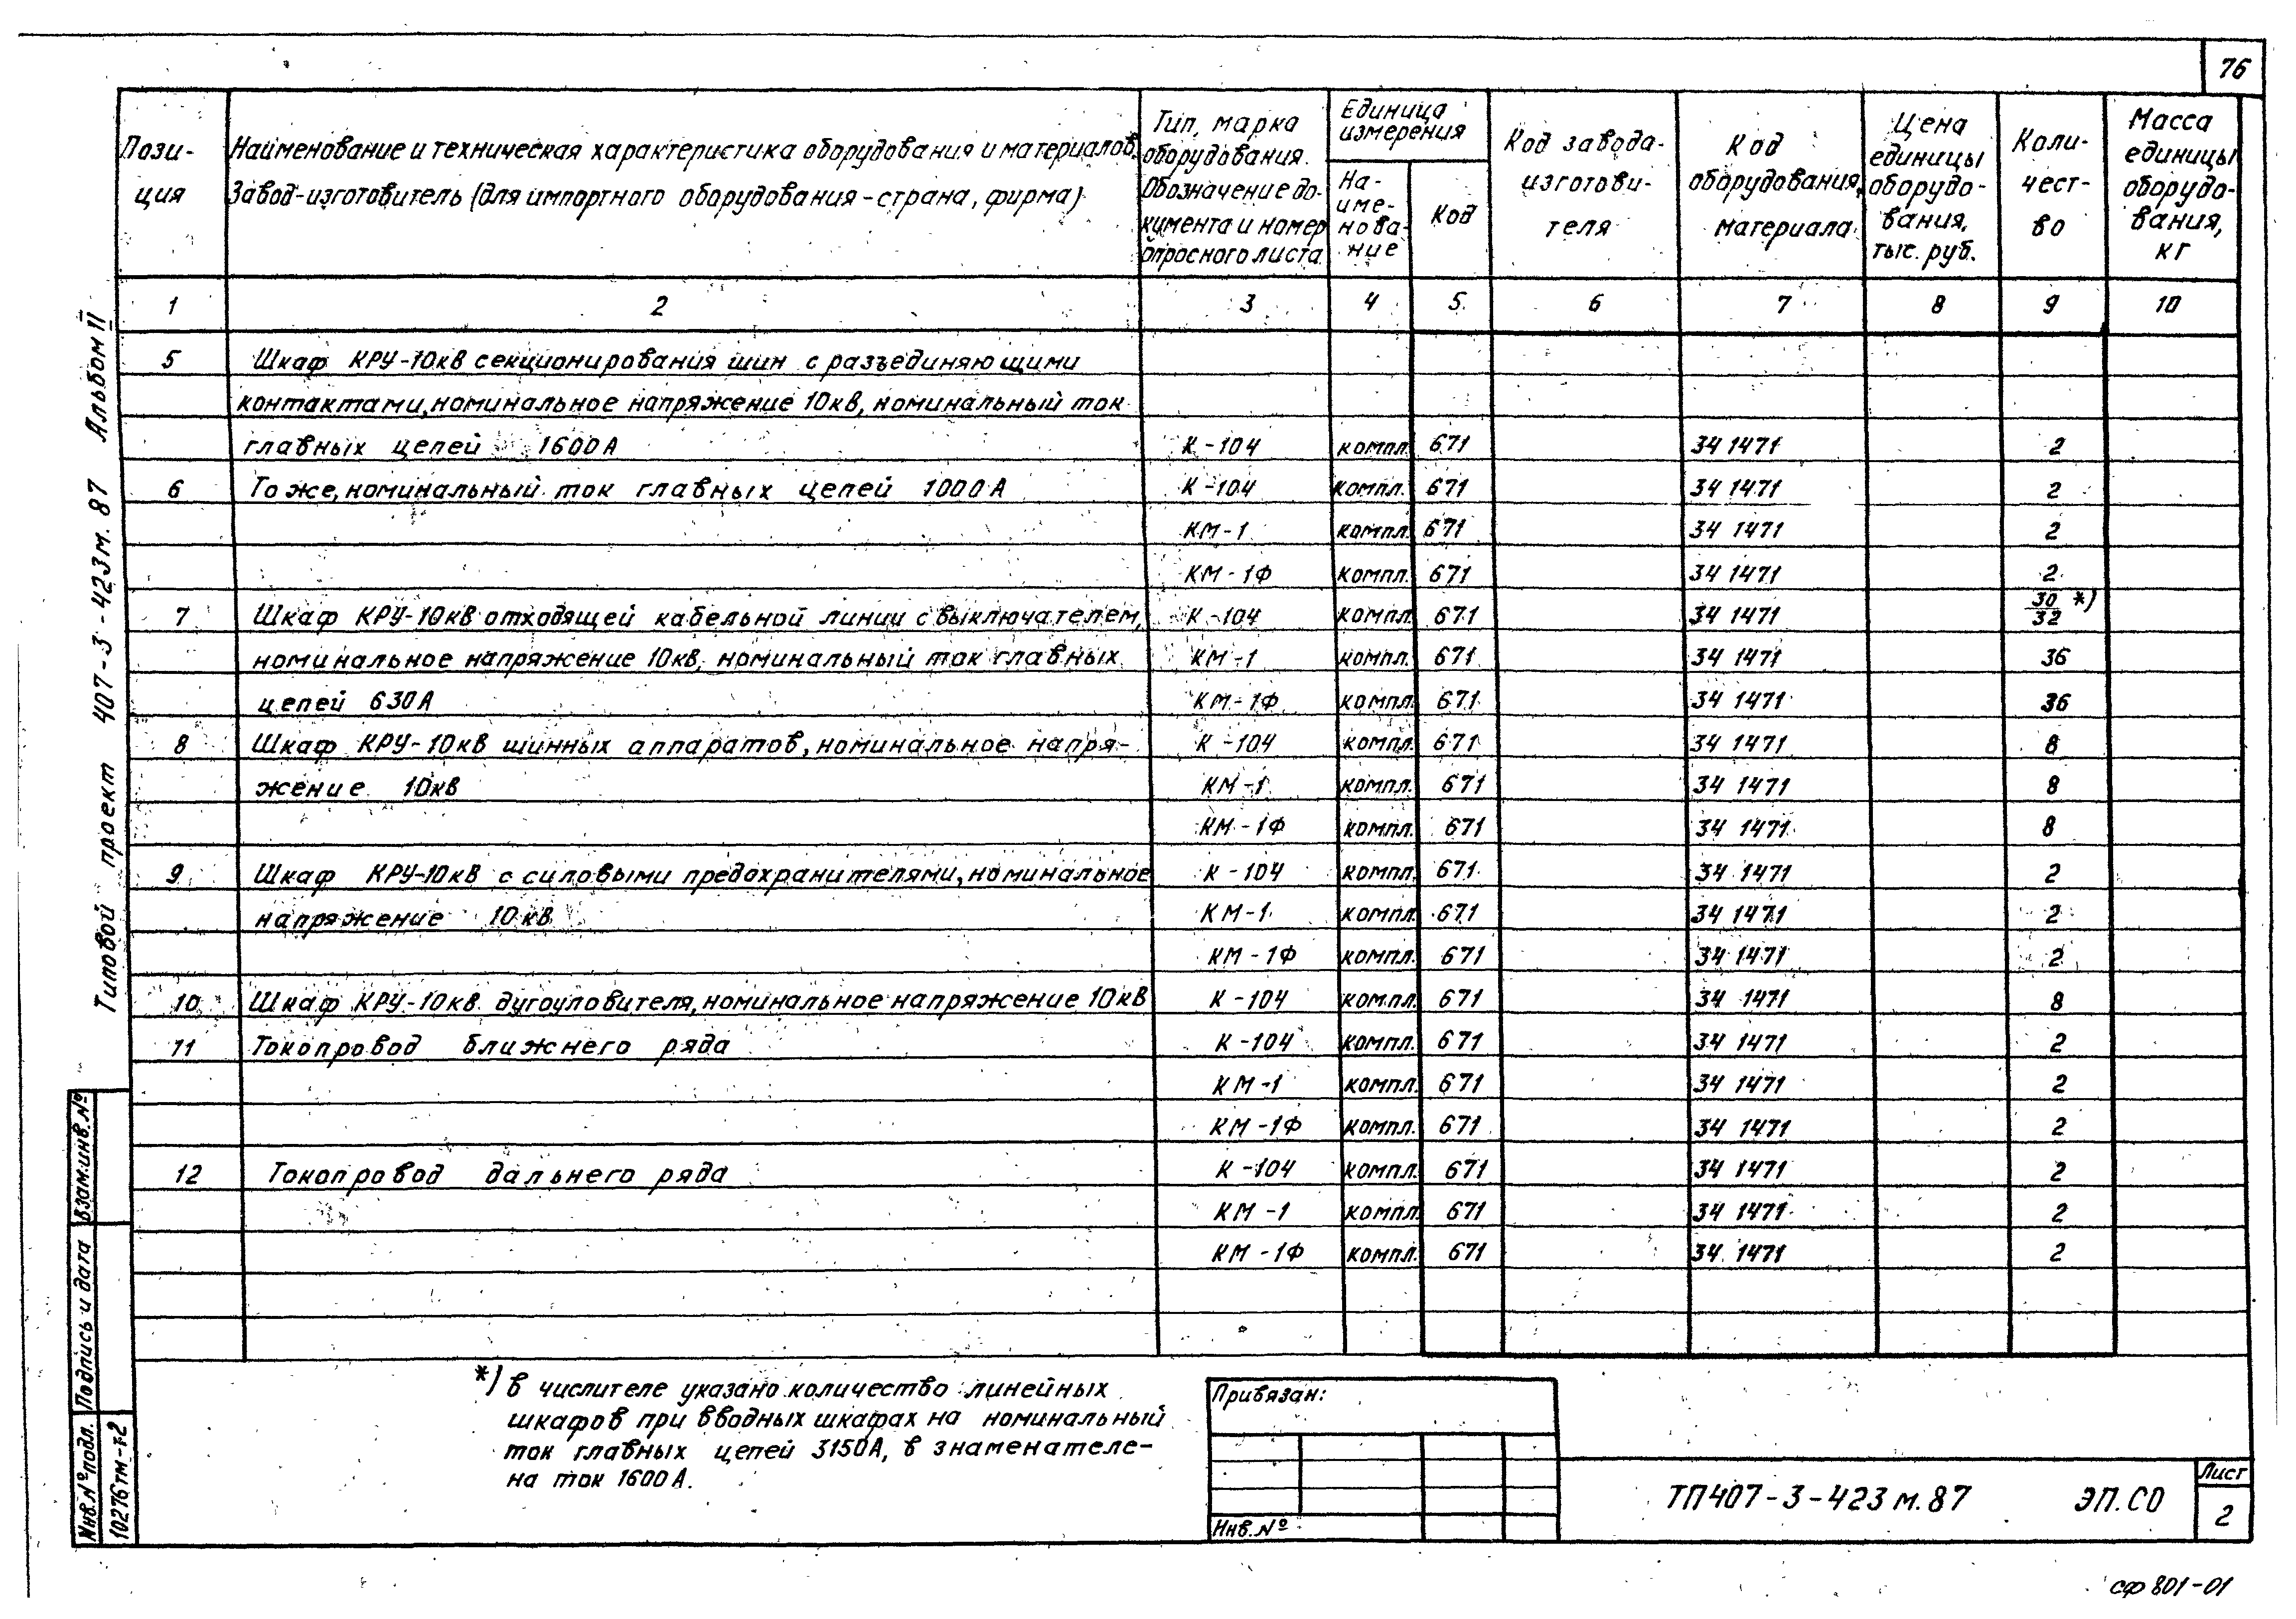 76
Пози-
ция
Наименование и техническая характеристика оборудования и материалов.
Завод-изготовитель (для импортного оборудования - страна, фирма)
Тип, марка
оборудования.
Обозначение до-
кумента и номер
опросного листа
Единица
измерения
На-
име-
нова-
ние
Код
Код завода-
изготови-
теля
Код
оборудования,
материала
Цена
единицы
оборудо-
вания,
тыс. руб.
Коли-
чест-
во
Масса
единицы
оборудо-
вания,
кг
1 2 3 4 5 6 7 8 9 10
5 Шкаф КРУ-10кВ секционирования шин с разъединяющими
контактами, номинальное напряжение 10кВ, номинальный ток
главных цепей 1600А К-104 компл. 671 34 1471 2
6 То же, номинальный ток главных цепей 1000А К-104 компл. 671 34 1471 2
КМ-1 компл. 671 34 1471 2
КМ-1Ф компл. 671 34 1471 2
7 Шкаф КРУ-10кВ отходящей кабельной линии с выключателем, К-104 компл. 671 34 1471 30/32 *)
номинальное напряжение 10кВ, номинальный ток главных КМ-1 компл. 671 34 1471 36
цепей 630А КМ-1Ф компл. 671 34 1471 36
8 Шкаф КРУ-10кВ шинных аппаратов, номинальное напря- К-104 компл. 671 34 1471 8
жение 10кВ КМ-1 компл. 671 34 1471 8
КМ-1Ф компл. 671 34 1471 8
9 Шкаф КРУ-10кВ с силовыми предохранителями, номинальное К-104 компл. 671 34 1471 2
напряжение 10кВ КМ-1 компл. 671 34 1471 2
КМ-1Ф компл. 671 34 1471 2
10 Шкаф КРУ-10кВ дугоуловителя, номинальное напряжение 10кВ К-104 компл. 671 34 1471 8
11 Токопровод ближнего ряда К-104 компл. 671 34 1471 2
КМ-1 компл. 671 34 1471 2
КМ-1Ф компл. 671 34 1471 2
12 Токопровод дальнего ряда К-104 компл. 671 34 1471 2
КМ-1 компл. 671 34 1471 2
КМ-1Ф компл. 671 34 1471 2
*) в числителе указано количество линейных
шкафов при вводных шкафах на номинальный
ток главных цепей 3150А, в знаменателе-
на ток 1600А.
Привязан:
Инв.№
ТП407-3-423м.87 ЭП.СО
Лист
2
сф 801-01
Типовой проект 407-3-423м.87 Альбом II
Взам.инв.№
Подпись и дата
Инв.№подл.
10276тм-т2